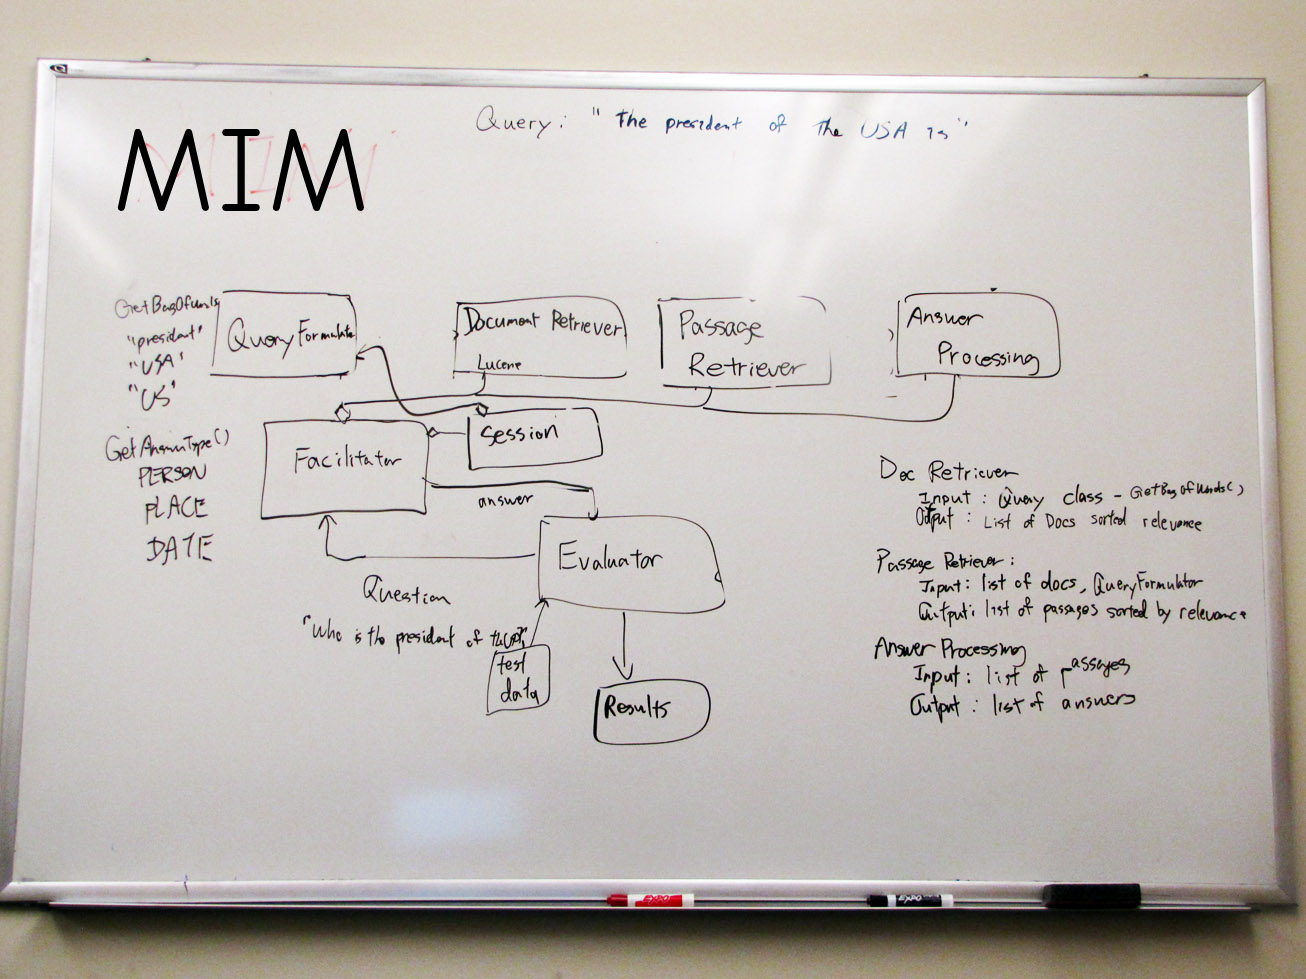 MIM
Query: "The president of the USA is"
GetBagOfWords
"president"
"USA"
"US"
QueryFormulator
Document Retriever
Lucene
Passage
Retriever
Answer
Processing
GetAnswerType()
PERSON
PLACE
DATE
Facilitator
Session
answer
Evaluator
Question
"Who is the president of the USA?"
test
data
Results
Doc Retriever
Input: Query class - GetBagOfWords()
Output: List of Docs sorted relevance
Passage Retriever:
Input: list of docs, QueryFormulator
Output: list of passages sorted by relevance
Answer Processing
Input: list of passages
Output: list of answers
EXPO
EXPO